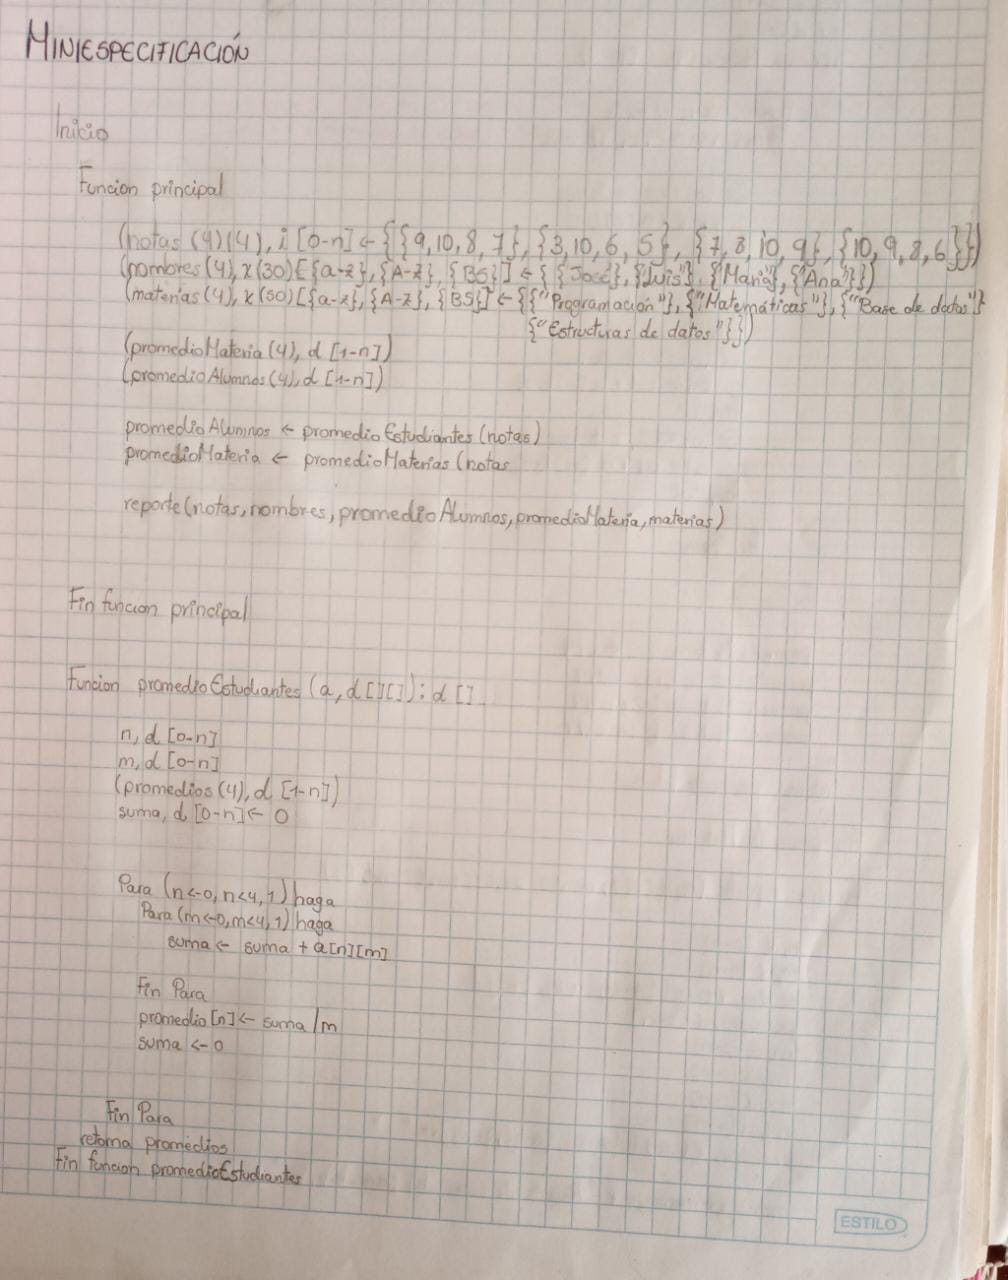 MINIESPECIFICACIÓN
Inicio
Funcion principal
(notas (4)(4), i [0-n] ← {{9,10,8,7},{3,10,6,5},{7,8,10,9},{10,9,8,6}})
(nombres (4), x(30)[{a-z},{A-z},{BS}] ← {{José},{Luis"},{"Maria"},{"Ana"}})
(materias (4), x(50)[{a-z},{A-z},{BS}] ← {{"Programación"},{"Matemáticas"},{"Base de datos"}
{"Estructuras de datos"}})
(promedioMateria (4), d [1-n])
(promedioAlumnos (4), d [1-n])
promedioAlumnos ← promedioEstudiantes (notas)
promedioMateria ← promedioMaterias (notas
reporte (notas, nombres, promedioAlumnos, promedioMateria, materias)
Fin funcion principal
Funcion promedioEstudiantes (a, d[][]): d []
n, d [0-n]
m, d [0-n]
(promedios (4), d [1-n])
suma, d [0-n] ← 0
Para (n←0, n<4, 1) haga
Para (m←0, m<4, 1) haga
suma ← suma + a[n][m]
Fin Para
promedio [n] ← suma /m
suma ← 0
Fin Para
retorna promedios
Fin funcion promedioEstudiantes
ESTILO